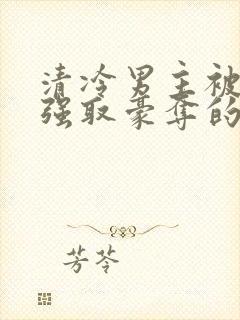 清冷男主被
强取豪夺的
芳苓